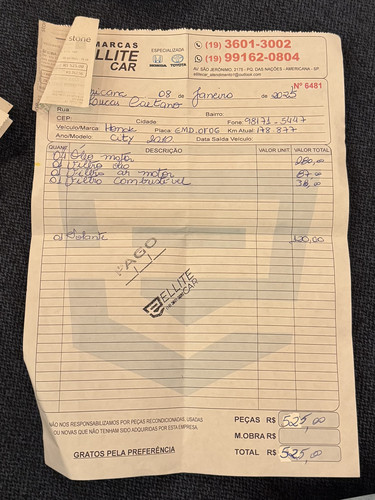 stone
MARCAS
ELLITE
CAR
ESPECIALIZADA
HONDA TOYOTA
(19) 3601-3002
(19) 99162-0804
AV. SÃO JERÔNIMO, 2175 - PQ. DAS NAÇÕES - AMERICANA - SP.
Nº 6481
08 de Janeiro de 2025
Lucas Caetano
Rua
Bairro:
CEP: Cidade: Fone: 98171-5447
Veículo/Marca: Honda Placa: EMD.0F06 Km Atual: 178.877
Ano/Modelo: City 2010 Data Saída Veículo:
QUANT. DESCRIÇÃO VALOR UNIT. VALOR TOTAL
04 Óleo motor
01 Filtro óleo
01 Filtro ar motor 87,00
01 Filtro combustível 38,00
01 120,00
PAGO
ELLITE
CAR
NÃO NOS RESPONSABILIZAMOS POR PEÇAS RECONDICIONADAS, USADAS
OU NOVAS QUE NÃO TENHAM SIDO ADQUIRIDAS POR ESTA EMPRESA.
GRATOS PELA PREFERÊNCIA
PEÇAS R$ 525,00
M.OBRA R$
TOTAL R$ 525,00